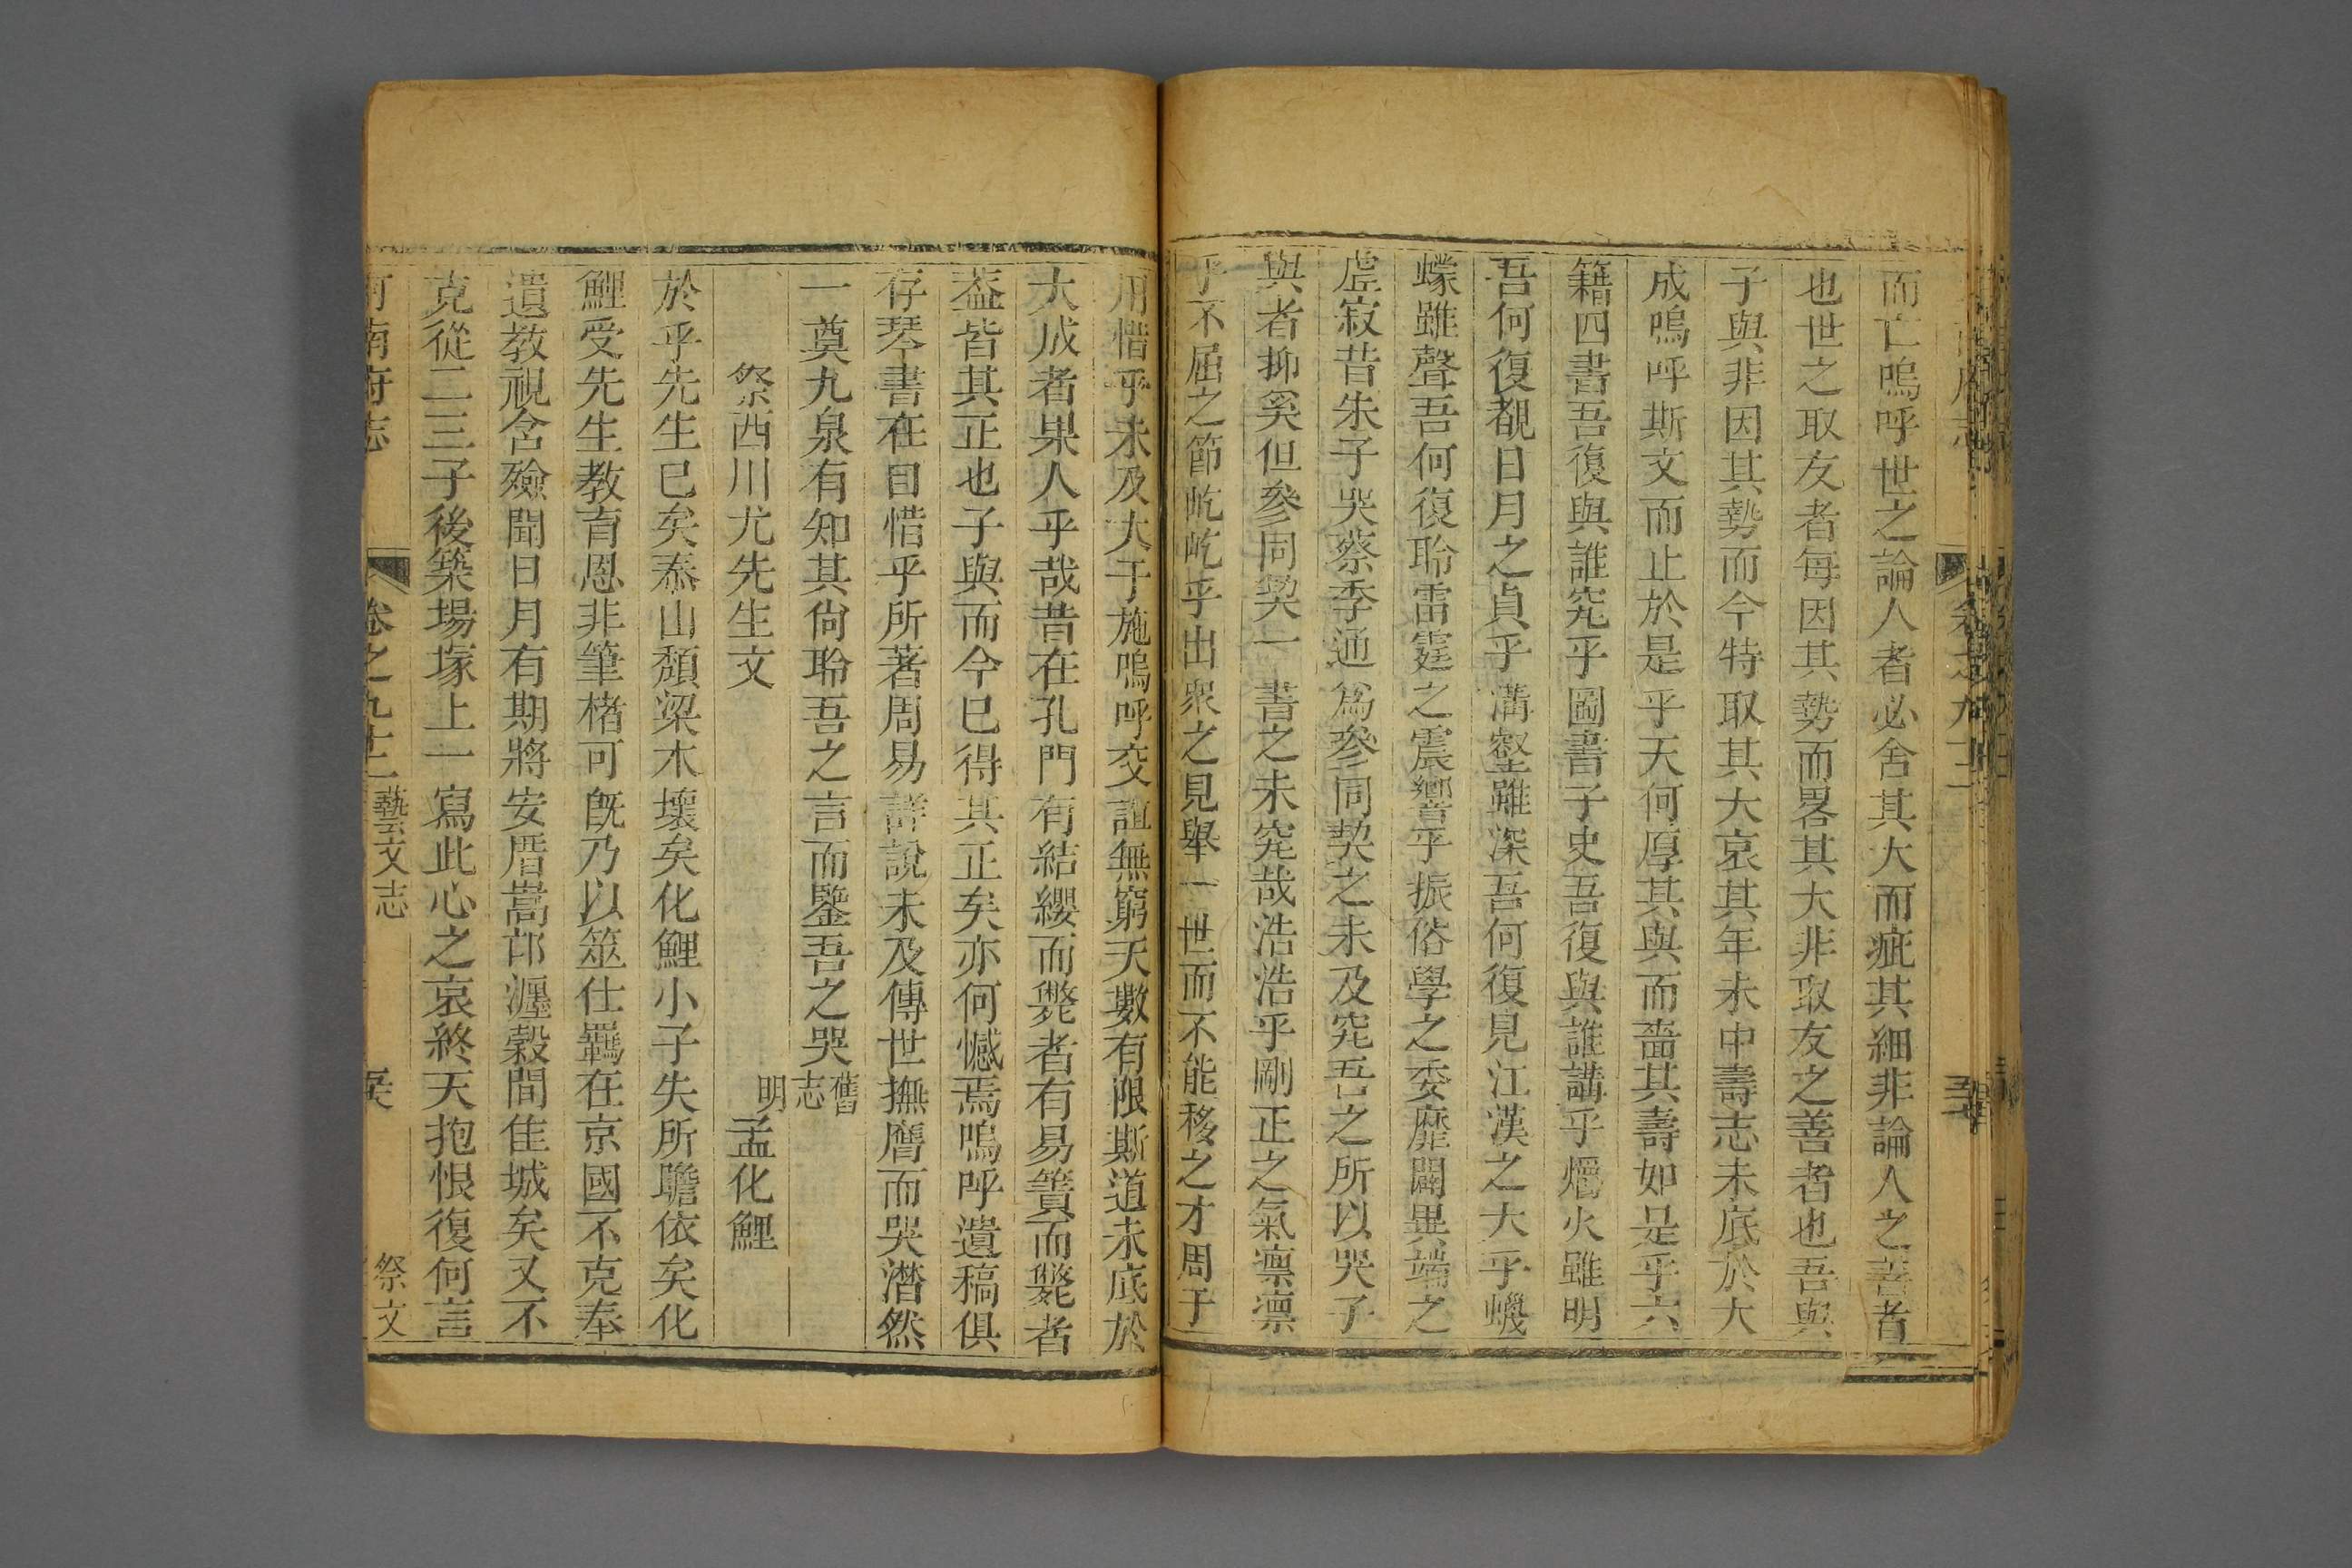 而亡嗚呼世之論人者必舍其大而疵其細非論人之善者
也世之取友者每因其勢而畧其大非取友之善者也吾與
子與非因其勢而今特取其大哀其年未中壽志未底於大
成嗚呼斯文而止於是乎天何厚其與而嗇其壽如是乎六
籍四書吾復與誰究乎圖書子史吾復與誰講乎爝火雖明
吾何復覩日月之貞乎溝壑雖深吾何復見江漢之大乎蠛
蠓雖聲吾何復聆雷霆之震響乎振俗學之委靡闢異端之
虛寂昔朱子哭蔡季通爲參同契之未及究吾之所以哭子
與者抑奚但參同契一書之未究哉浩浩乎剛正之氣凛凛
乎不屈之節屹屹乎出衆之見舉一世而不能移之才周于
用惜乎未及大于施嗚呼交誼無窮天數有限斯道未底於
大成者果人乎哉昔在孔門有結纓而斃者有易簀而斃者
葢皆其正也子與而今已得其正矣亦何憾焉嗚呼遺稿俱
存琴書在目惜乎所著周易詳說未及傳世撫膺而哭潸然
一奠九泉有知其尙聆吾之言而鑒吾之哭舊志
祭西川尤先生文 明孟化鯉
於乎先生已矣泰山頽梁木壞矣化鯉小子失所瞻依矣化
鯉受先生教育恩非筆楮可旣乃以筮仕羈在京國不克奉
遺教視含殮聞日月有期將安厝嵩邙瀍榖間佳城矣又不
克從二三子後築場塚上一寫此心之哀終天抱恨復何言
河南府志 卷之九十二 藝文志 祭文